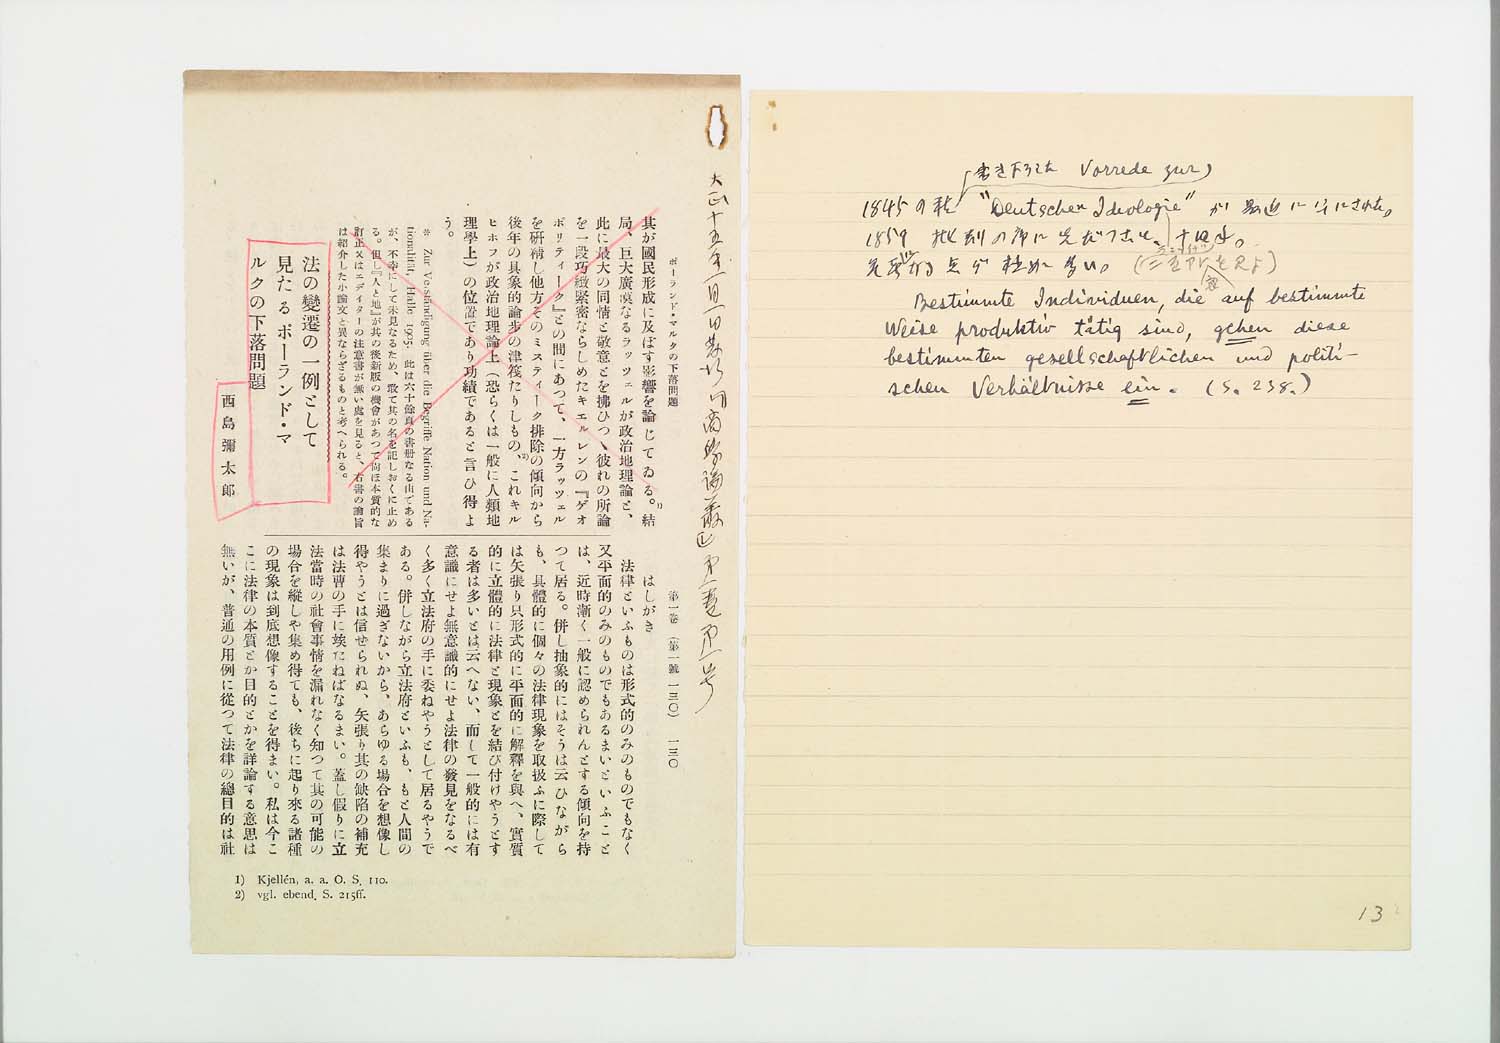 大正十五年
ポーランド・マルクの下落問題
其が國民形成に及ぼす影響を論じてゐる。1)結
局、巨大廣漠なるラッツェルが政治地理論と、
此に最大の同情と敬意とを拂ひつゝ彼れの所論
を一段巧緻緊密ならしめたキエルレンの『ゲオ
ポリティーク』との間にあつて、一方ラッツェル
を研精し他方そのミスティーク排除の傾向から
後年の具象的論歩の津筏たりしもの、2)これキル
ヒホフが政治地理論上(恐らくは一般に人類地
理學上)の位置であり功績であると言ひ得よ
う。
* Zur Verständigung über die Begriffe Nation und Na-
tionalität, Halle 1905. 此は六十餘頁の書册なる由である
が、不幸にして未見なるため、敢て其の名を記しおくに止め
る。但し『人と地』が其の後新版の機會があつて尙ほ本質的な
訂正又はエディターの注意書が無い處を見ると、右書の論旨
は紹介した小論文と異ならざるものと考へられる。
法の變遷の一例として
見たるポーランド・マ
ルクの下落問題
西島彌太郎
第一卷 (第一號 一三〇) 一三〇
はしがき
法律といふものは形式的のみのものでもなく
又平面的のみのものでもあるまいといふこと
は、近時漸く一般に認められんとする傾向を持
つて居る。併し抽象的にはそうは云ひながら
も、具體的に個々の法律現象を取扱ふに際して
は矢張り只形式的に平面的に解釋を與へ、實質
的に立體的に法律と現象とを結び付けやうとす
る者は多いとは云へない、而して一般的には有
意識にせよ無意識的にせよ法律の發見をなるべ
く多く立法府の手に委ねやうとして居るやうで
ある。併しながら立法府といふも、もと人間の
集まりに過ぎないから、あらゆる場合を想像し
得やうとは信せられぬ、矢張り其の缺陷の補充
は法曹の手に埃たねばなるまい。蓋し假りに立
法當時の社會事情を漏れなく知つて其の可能の
場合を縱しや集め得ても、後ちに起り來る諸種
の現象は到底想像することを得まい。私は今こ
こに法律の本質とか目的とかを詳論する意思は
無いが、普通の用例に從つて法律の總目的は社
1) Kjellén, a. a. O. S. 110.
2) vgl. ebend. S. 215ff.
書き下ろした Vorrede zur
1845の秋 "Deutschen Ideologie" が最近に
1859 批判の
点が極めて多い。
Bestimmte Individuen, die auf bestimmte
Weise produktiv tätig sind, gehen diese
bestimmten gesellschaftlichen und politi-
schen Verhältnisse ein. (S. 238.)
13